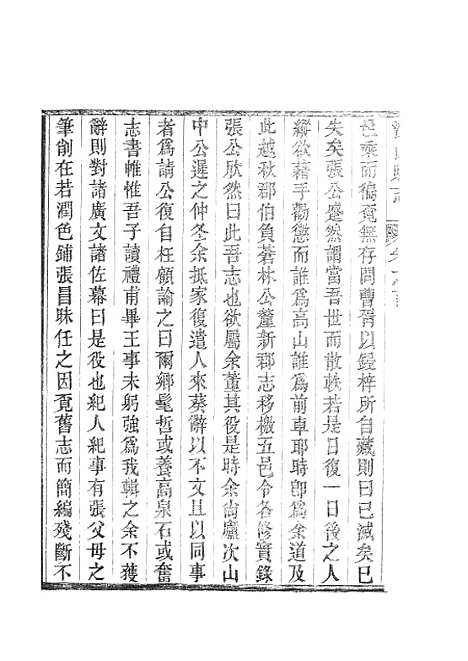 邑乘而徧覓無存問曹胥以鋟梓所自藏則曰已滅矣已
失矣張公蹙然謂當吾世而散軼若是日復一日後之人
縱欲藉手勸懲而誰爲高山誰爲前車耶時卽爲余道及
此越秋郡伯負蒼林公釐新郡志移檄五邑令各修實錄
張公欣然曰此吾志也欲屬余董其役是時余尙廬次山
中公遲之仲冬余抵家復遣人來葵辭以不文且以同事
者爲請公復自枉顧諭之曰爾鄉髦哲或養高泉石或奮
志書帷惟吾子讀禮甫畢王事未躬強爲我輯之余不獲
辭則對諸廣文諸佐幕曰是役也紀人紀事有張父母之
筆削在若潤色鋪張昌昧任之因覓舊志而簡編殘斷不